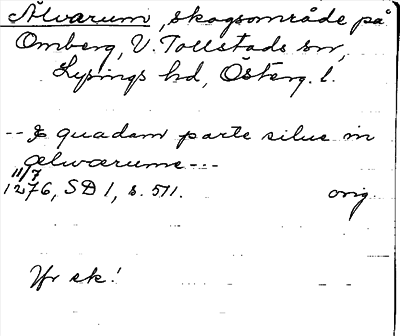 Älvarum, skogsområde på
Omberg, V. Tollstads sn,
Lysings hd, Österg. l.
-- & quadam parte silue in
ælwærume ---
11/7
1276, SD 1, s. 511. orig.
Yr sk!